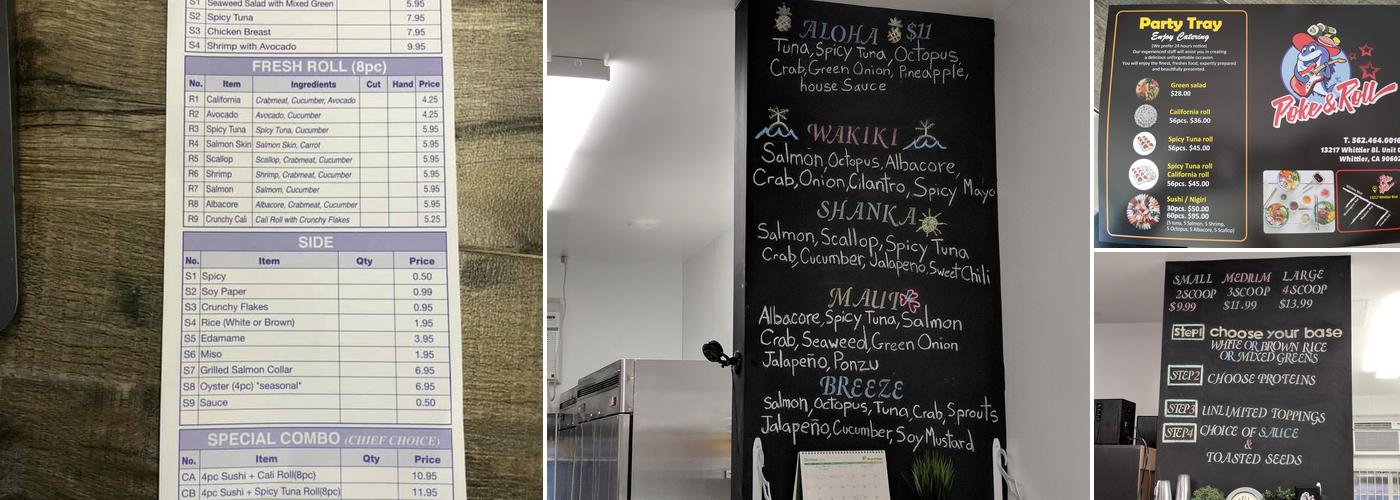 S1 Seaweed Salad with Mixed Green 5.95
S2 Spicy Tuna 7.95
S3 Chicken Breast 7.95
S4 Shrimp with Avocado 9.95
FRESH ROLL (8pc)
No. Item Ingredients Cut Hand Price
R1 California Crabmeat, Cucumber, Avocado 4.25
R2 Avocado Avocado, Cucumber 4.25
R3 Spicy Tuna Spicy Tuna, Cucumber 5.95
R4 Salmon Skin Salmon Skin, Carrot 5.95
R5 Scallop Scallop, Crabmeat, Cucumber 5.95
R6 Shrimp Shrimp, Crabmeat, Cucumber 5.95
R7 Salmon Salmom, Cucumber 5.95
R8 Albacore Albacore, Crabmeat, Cucumber 5.95
R9 Crunchy Cali Cali Roll with Crunchy Flakes 5.25
SIDE
No. Item Qty Price
S1 Spicy 0.50
S2 Soy Paper 0.99
S3 Crunchy Flakes 0.95
S4 Rice (White or Brown) 1.95
S5 Edamame 3.95
S6 Miso 1.95
S7 Grilled Salmon Collar 6.95
S8 Oyster (4pc) *seasonal* 6.95
S9 Sauce 0.50
SPECIAL COMBO (CHIEF CHOICE)
No. Item Qty Price
CA 4pc Sushi + Cali Roll(8pc) 10.95
CB 4pc Sushi + Spicy Tuna Roll(8pc) 11.95
ALOHA $11
Tuna, Spicy Tuna, Octopus,
Crab, Green Onion, Pineapple,
house Sauce
WAKIKI
Salmon, Octopus, Albacore,
Crab, Onion, Cilantro, Spicy Mayo
SHANKA
Salmon, Scallop, Spicy Tuna
Crab, Cucumber, Jalapeño, Sweet Chili
MAUI
Albacore, Spicy Tuna, Salmon
Crab, Seaweed, Green Onion
Jalapeño, Ponzu
BREEZE
Salmon, Octopus, Tuna, Crab, Sprouts
Jalapeño, Cucumber, Soy Mustard
Party Tray
Enjoy Catering
(We prefer 24 hours notice)
Our experienced staff will assist you in creating
a delicious unforgettable occasion.
You will enjoy the finest, freshes food, expertly prepared
and beautifully presented.
Green salad
$28.00
California roll
56pcs. $36.00
Spicy Tuna roll
56pcs. $45.00
Spicy Tuna roll
California roll
56pcs. $45.00
Sushi / Nigiri
30pcs. $50.00
60pcs. $95.00
(5 tuna, 5 Salmon, 5 Shrimp,
5 Octopus, 5 Albacore, 5 Scallop)
Poke & Roll
T. 562.464.0016
13217 Whittier Bl. Unit
Whittier, CA 9060
SMALL MEDIUM LARGE
2SCOOP 3SCOOP 4SCOOP
$9.99 $11.99 $13.99
STEP1 choose your base
WHITE OR BROWN RICE
OR MIXED GREENS
STEP2 CHOOSE PROTEINS
STEP3 UNLIMITED TOPPINGS
STEP4 CHOICE OF SAUCE
&
TOASTED SEEDS